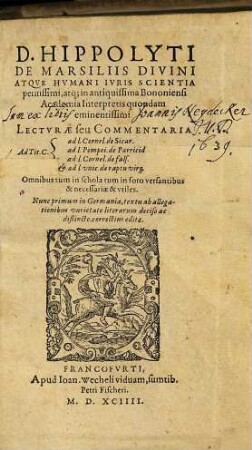 D. HIPPOLYTI
DE MARSILIIS DIVINI
ATQVE HVMANI IVRIS SCIENTIA
peritissimi, atq; in antiquissima Bononiensi
Academia Interpretis quondam
eminentissimi
Sum ex libris Joannis
LECTVRÆ seu COMMENTARIA
1639.
Ad Tit. C.
ad l. Cornel. de Sicar.
ad l. Pompei. de Parricid
ad l. Cornel. de fals.
& ad l. vnic. de raptu virg.
Omnibus tum in schola tum in foro versantibus
& necessariæ & vtiles.
Nunc primum in Germania, textu ab allega-
tionibus varietate literarum deciso ac
distincto, correctim editæ.
FRANCOFVRTI,
Apud Ioan. Wecheli viduam, sumtib.
Petri Fischeri.
M. D. XCIIII.